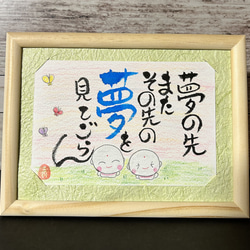 夢の先
また
その先の
夢を
見てごらん